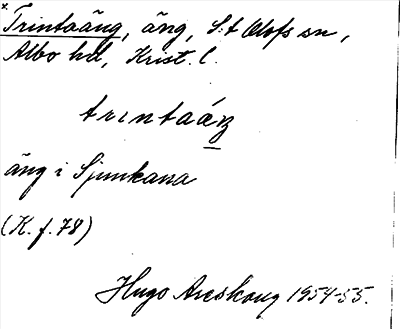 × Trintaäng, äng, S:t Olofs sn,
Albo hd, Krist. l.
trıntaáŋ
äng i Sjunkana
(K. f. 78)
Hugo Areskoug 1954-55.